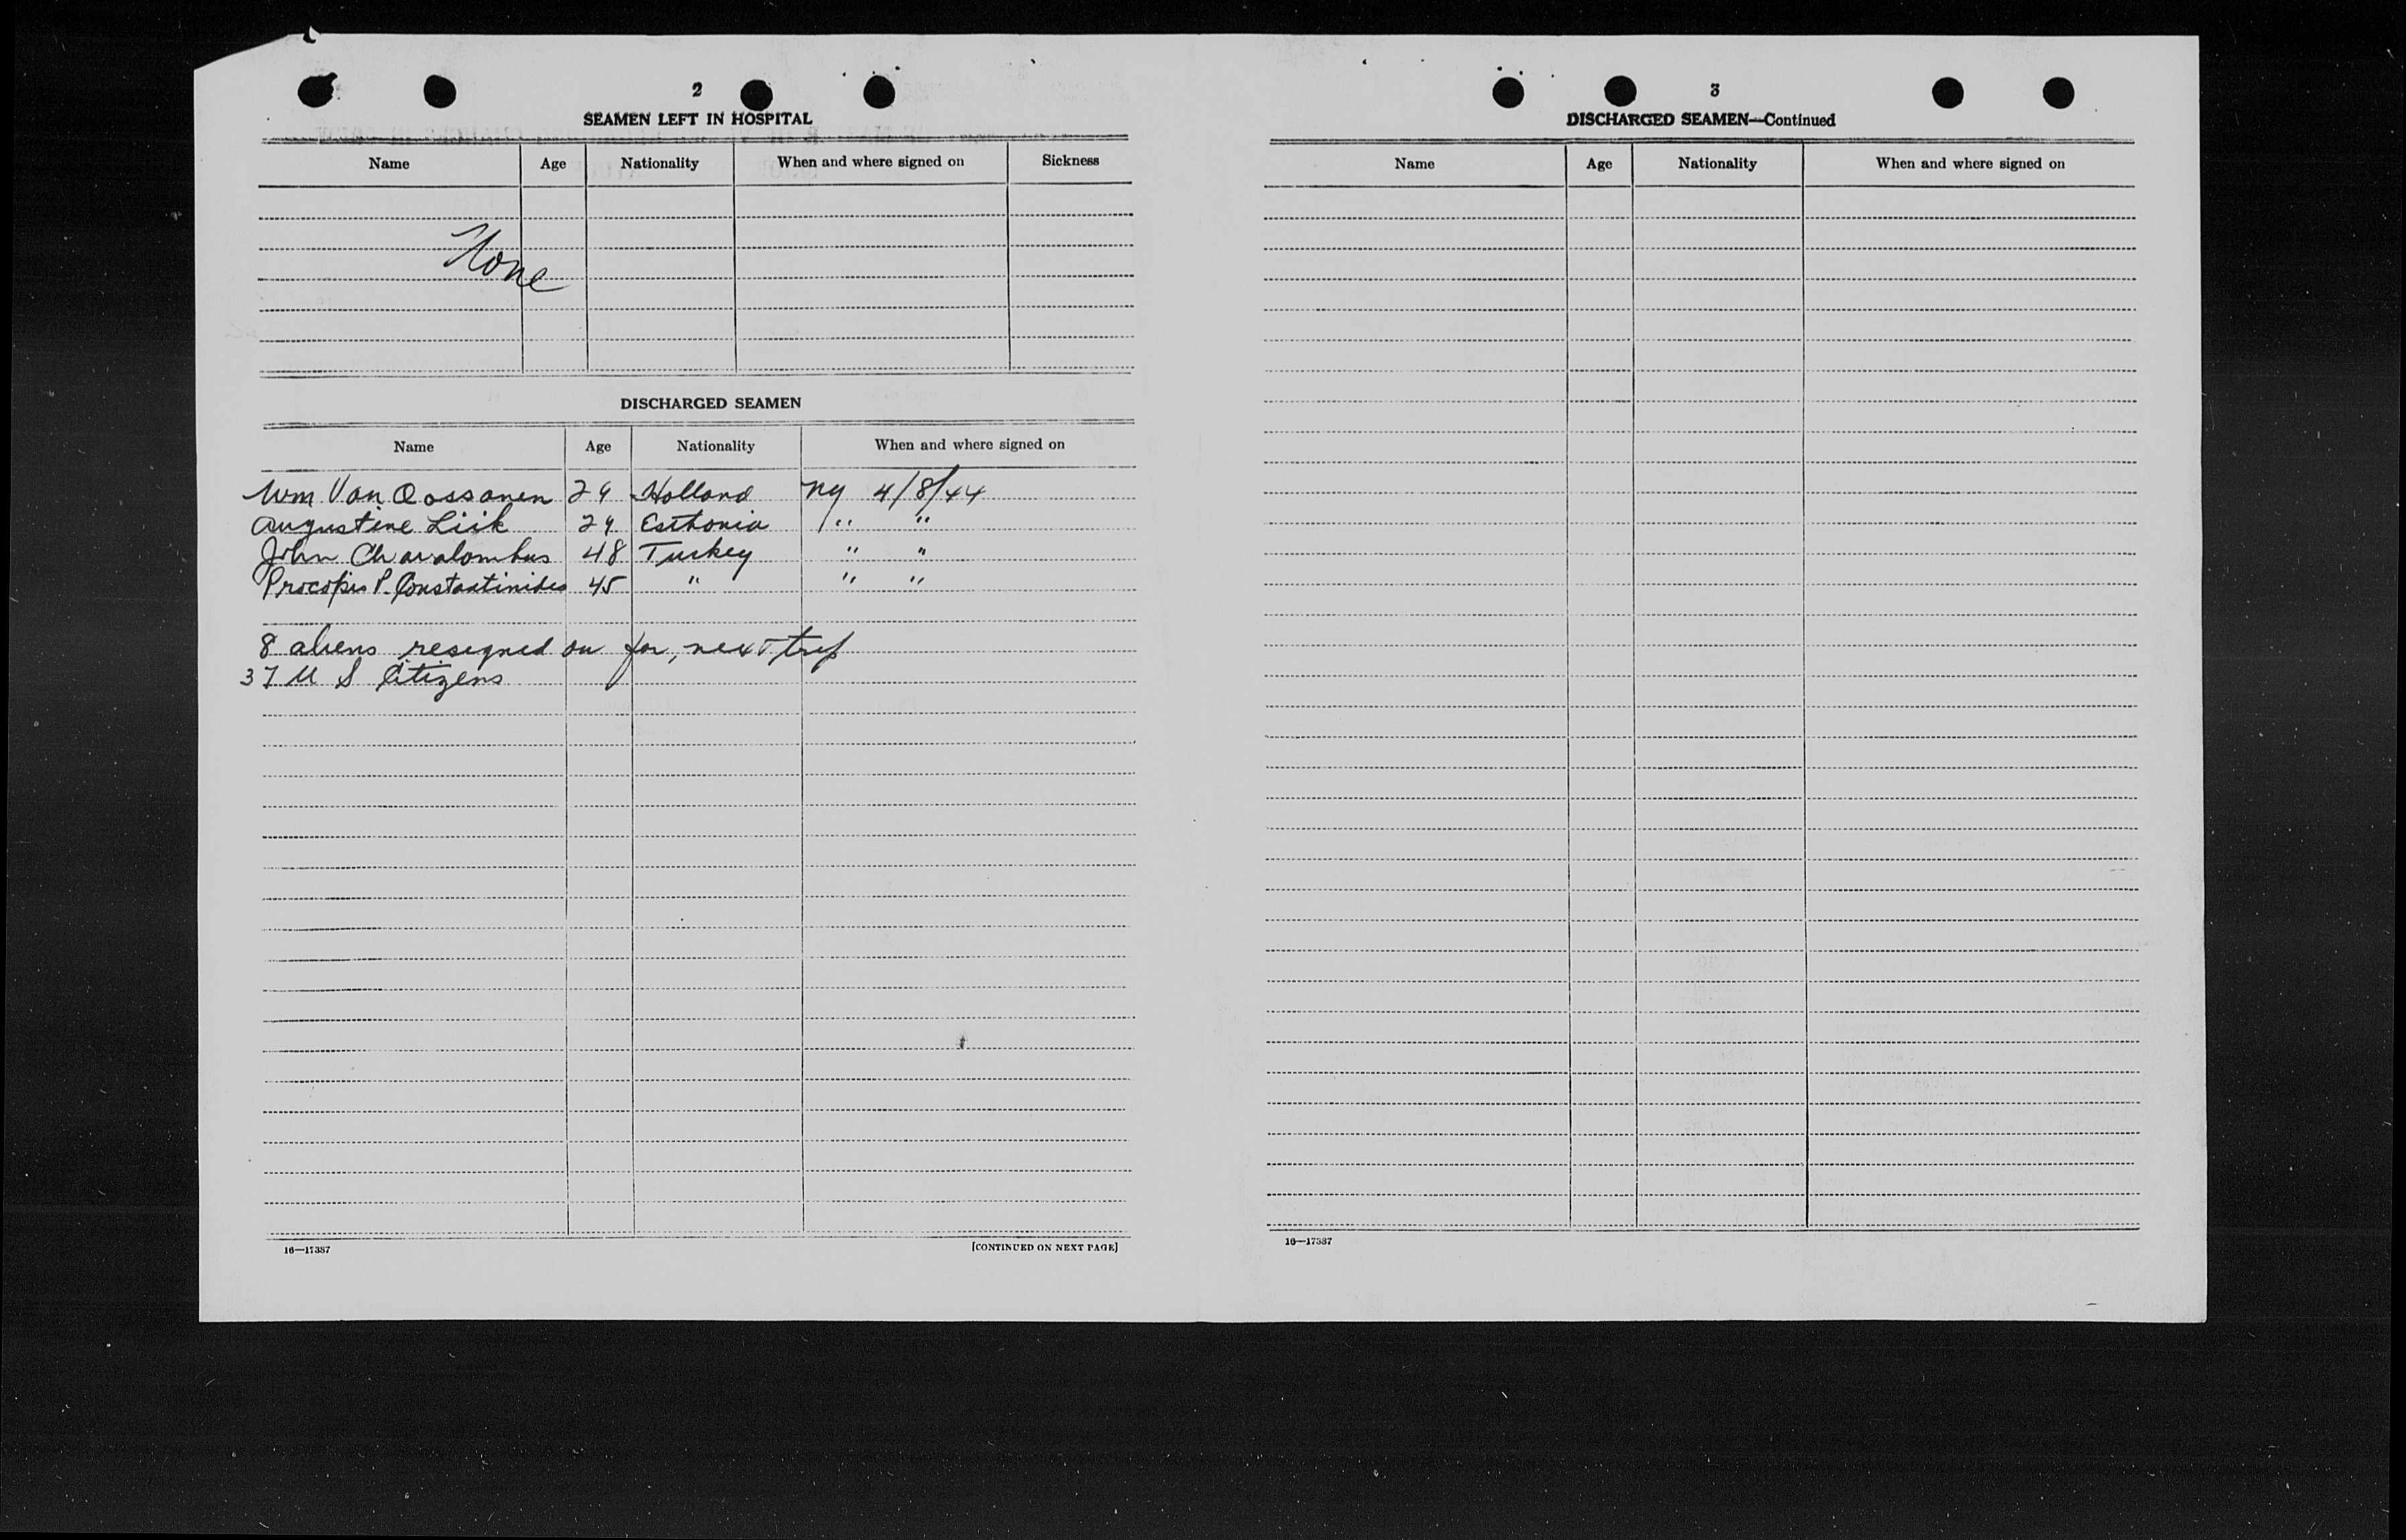 2
SEAMEN LEFT IN HOSPITAL
Name Age Nationality When and where signed on Sickness
None
DISCHARGED SEAMEN
Name Age Nationality When and where signed on
Wm. Van Oossanen 29 Holland NY 4/8/44
Augustine Liik 29 Esthonia " "
John Charalombus 48 Turkey " "
Procopis P. Constantinides 45 " " "
8 aliens resigned on for next trip
37 U S Citizens
16—17387 [CONTINUED ON NEXT PAGE]
3
DISCHARGED SEAMEN—Continued
Name Age Nationality When and where signed on
16—17387